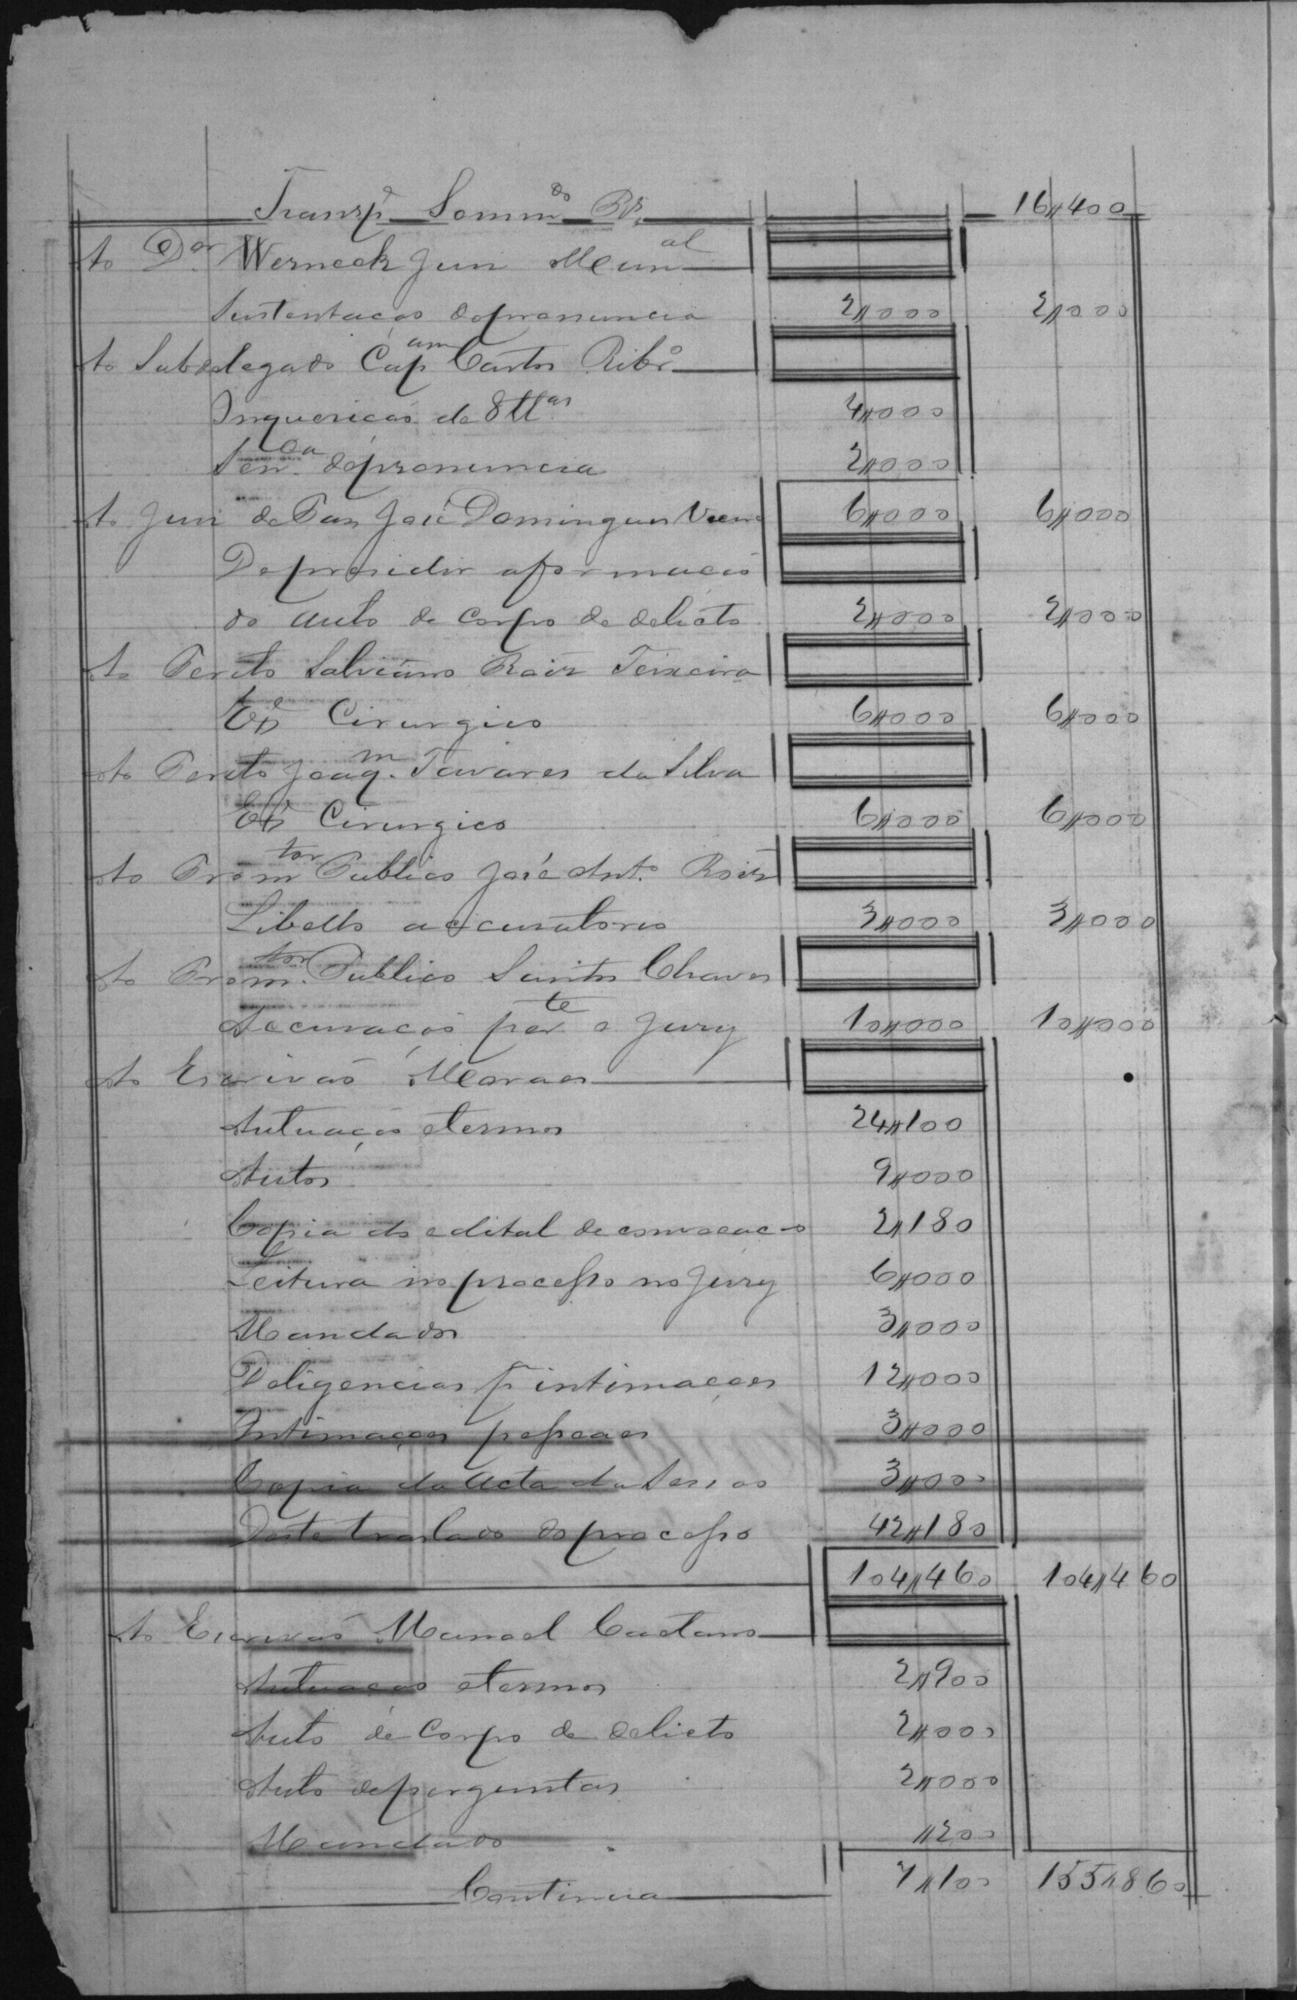 Transp.e Somm.do Rs 16,,400
Ao D.or Werneck Juiz Mun.al
Sustentacao depronuncia 2,,000 2,,000
Ao Subdelegado Cap.am Carlos Ribr.o
Inquericao de 8 tt.as 4,,000
Sen.ca depronuncia 2,,000
6,,000 6,,000
Ao Juiz de Paz José Domingues
De presidir aformacao
do auto de corpo de delicto 2,,000 2,,000
Ao Perito Salviano Roiz Teixeira
Cirurgico 6,,000 6,,000
Ao Perito Joaq.m Tavares da Silva
Cirurgico 6,,000 6,,000
Ao Prom.tor Publico José Ant.o Roiz
Libello accusatorio 3,,000 3,,000
Ao Prom.tor Publico Santos Chaves
Accusacao per.te o Jury 10,,000 10,,000
Ao Escrivaõ Moraes
Autuação etermos 24,,100
Autos 9,,000
Copia do edital de convocacao 2,,180
Leitura no processo no Jury 6,,000
Mandados 3,,000
Deligencias p.a intimaçoes 12,,000
Intimaçoes pessoaes 3,,000
Copia da Acta da Sessao 3,,000
Deste traslado do processo 42,,180
104,,460 104,,460
Ao Escrivaõ Manoel Caetano
Autuacao etermos 2,,900
Auto de Corpo de delicto 2,,000
Auto deperguntas 2,,000
Mandado ,,200
Continua 7,,100 155,,860